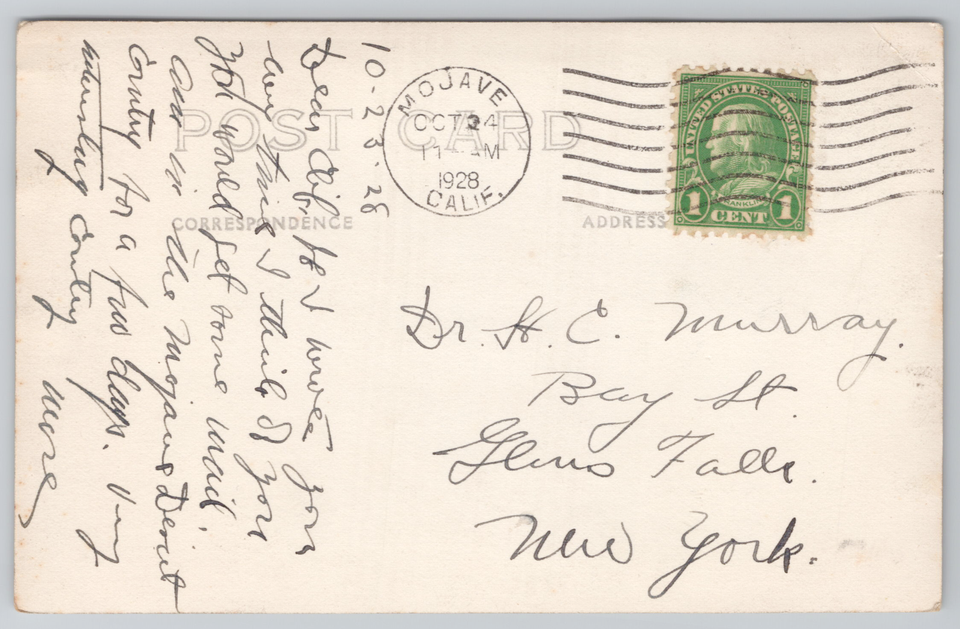 10-23-28
Dear Clif. If I wrote you
every time I think of you
You would get some mail.
am in the Mojave Desert
Country for a few days. Very
interesting Country more
POST CARD
CORRESPONDENCE
ADDRESS
MOJAVE
OCT 24
11 AM
1928
CALIF.
UNITED STATES POSTAGE
FRANKLIN
1 CENT 1
Dr. H. C. Murray.
Bay St.
Glens Falls.
New York.